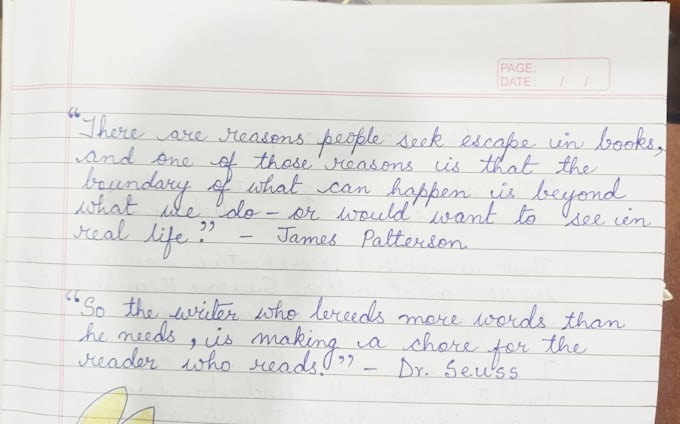 PAGE:
DATE: / /
“There are reasons people seek escape in books,
and one of those reasons is that the
boundary of what can happen is beyond
what we do – or would want to see in
real life.” – James Patterson
“So the writer who breeds more words than
he needs, is making a chore for the
reader who reads.” – Dr. Seuss